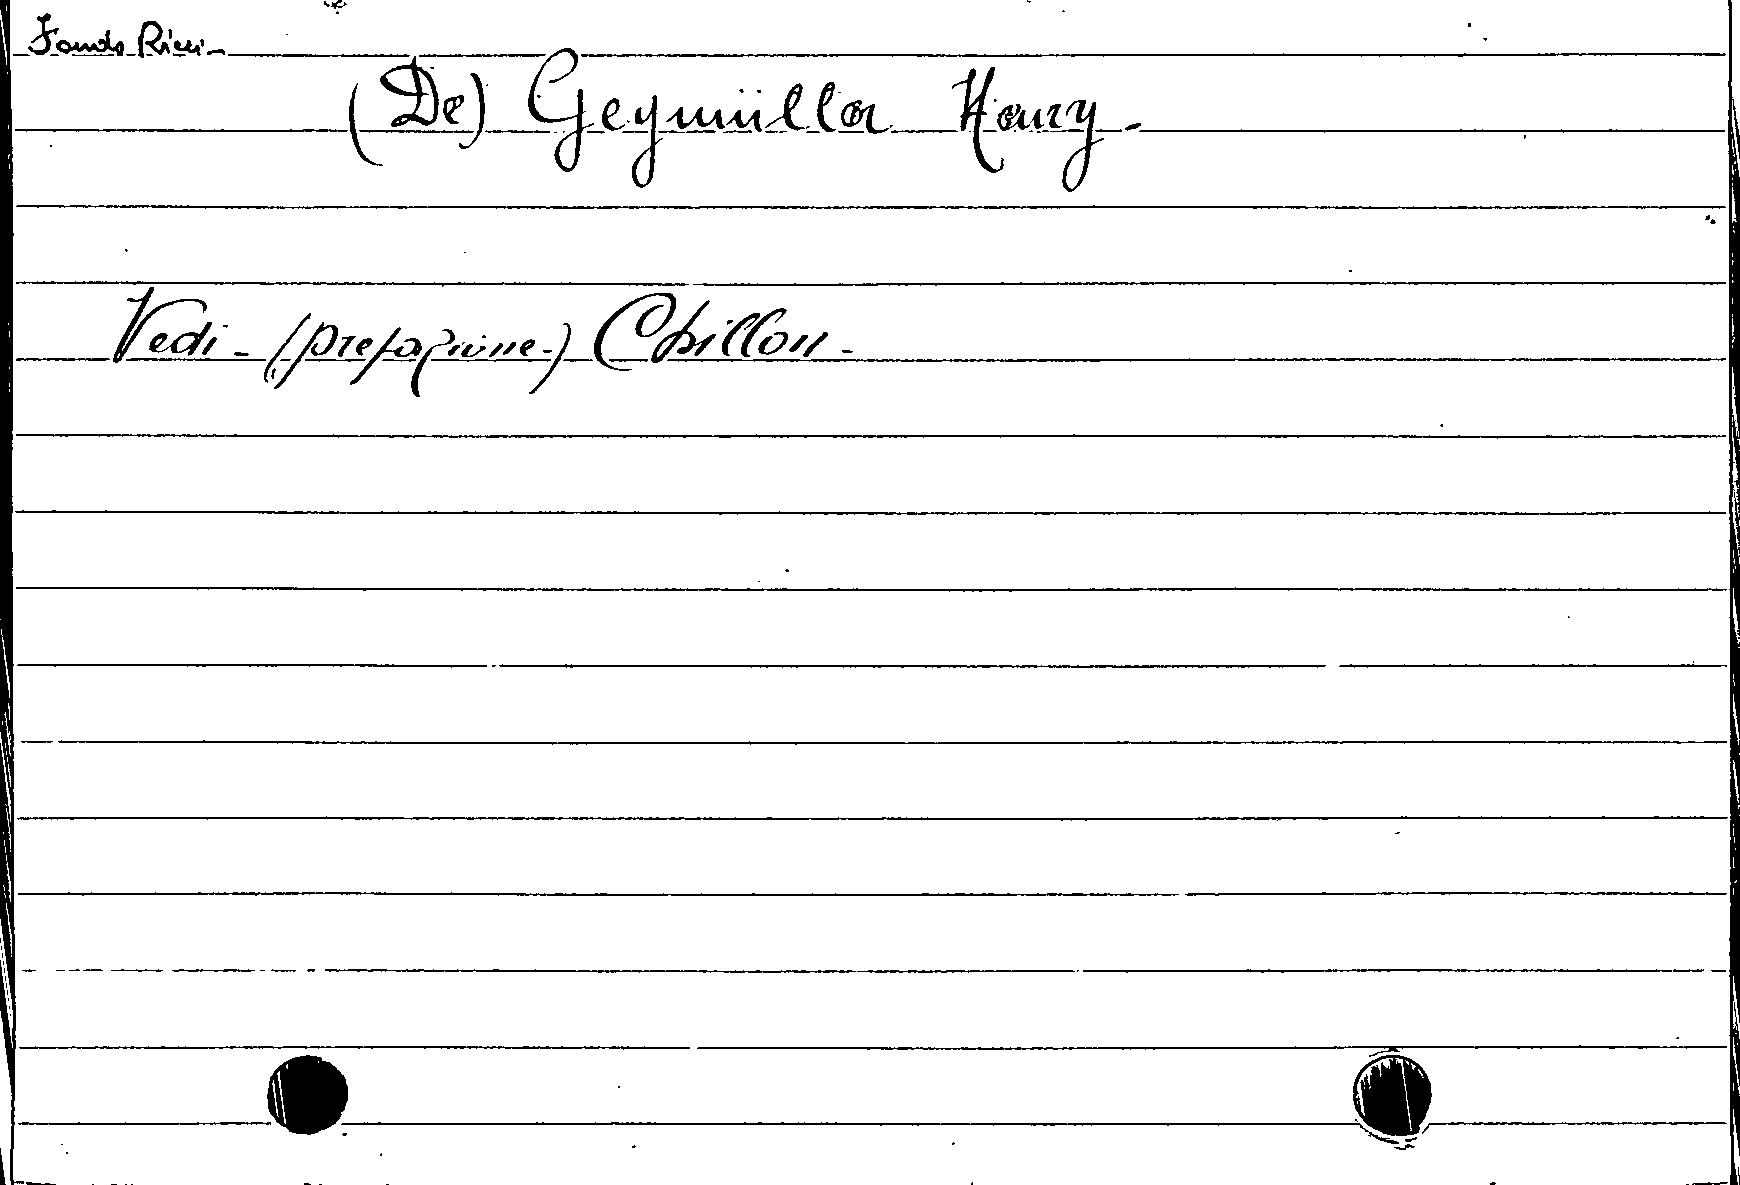 Fondo Ricci-
(De) Geymüller Henry.
Vedi - (prefazione.) Chillon.